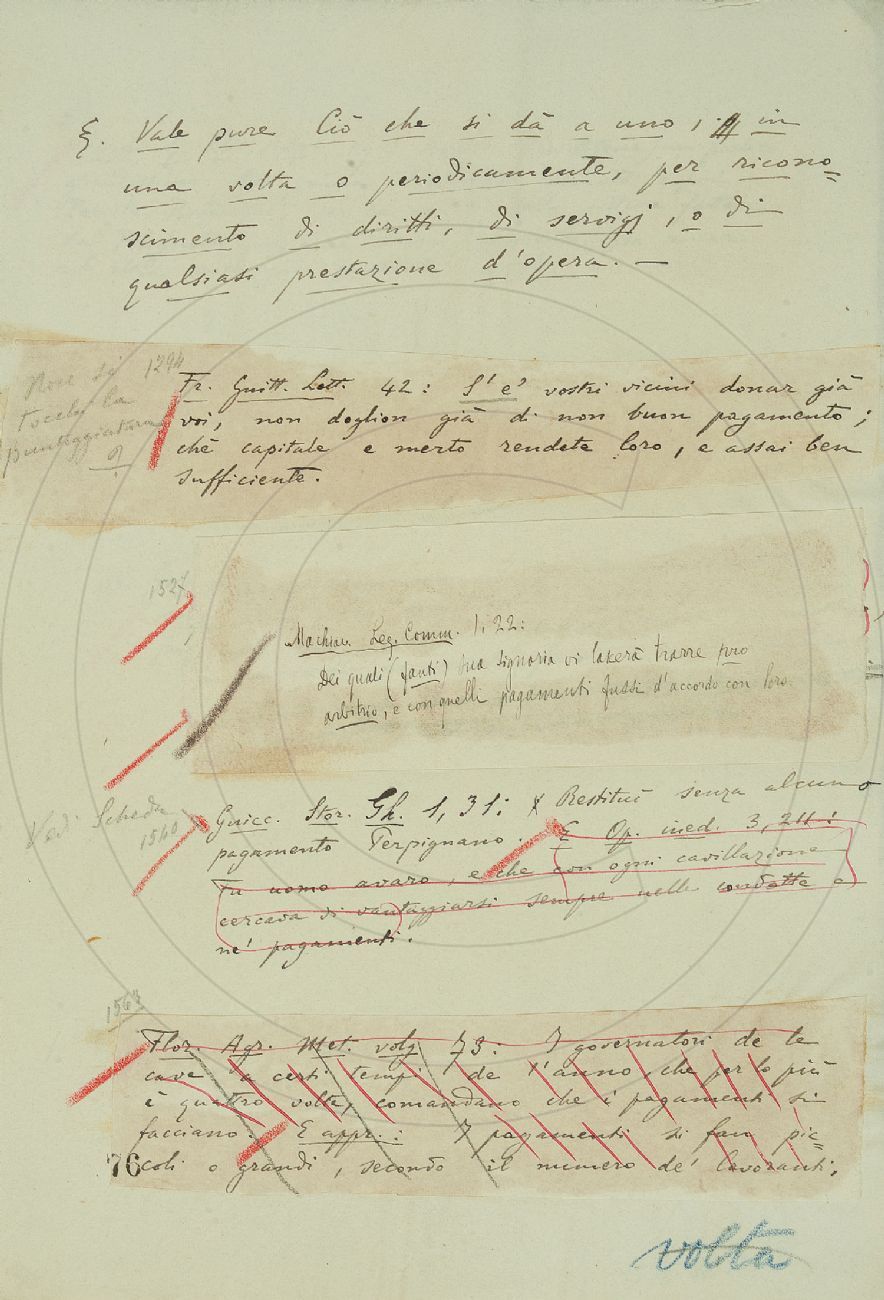 ξ. Vale pure Ciò che si dà a uno, in
una volta o periodicamente, per ricono=
scimento di diritti, di servigj, o di
qualsiasi prestazione d'opera. —
Non si
tocchi la
punteggiatura
1294
Fr. Guitt. Lett. 42: S' e' vostri vicini donar già
voi, non doglion già di non buon pagamento;
chè capitale e merto rendete loro, e assai ben
sufficiente.
1527
Machiav. Leg. Comm. 1, 22:
Dei quali (fanti) sua Signoria vi lascerà trarre pro
arbitrio, e con quelli pagamenti fussi d'accordo con loro.
Vedi Scheda
1540
Guicc. Stor. Gh. 1, 31: Restituì senza alcuno
pagamento Perpignano. E Op. ined. 3, 211:
Fu uomo avaro, e che con ogni cavillazione
cercava di vantaggiarsi sempre nelle condotte e
ne' pagamenti.
1563
Flor. Agr. Met. volg. 73: I governatori de le
cave a certi tempi de l'anno, che per lo più
è quattro volte, comandano che i pagamenti si
facciano. E appr.: I pagamenti si fan pic=
coli o grandi, secondo il numero de' lavoranti,
76
volta